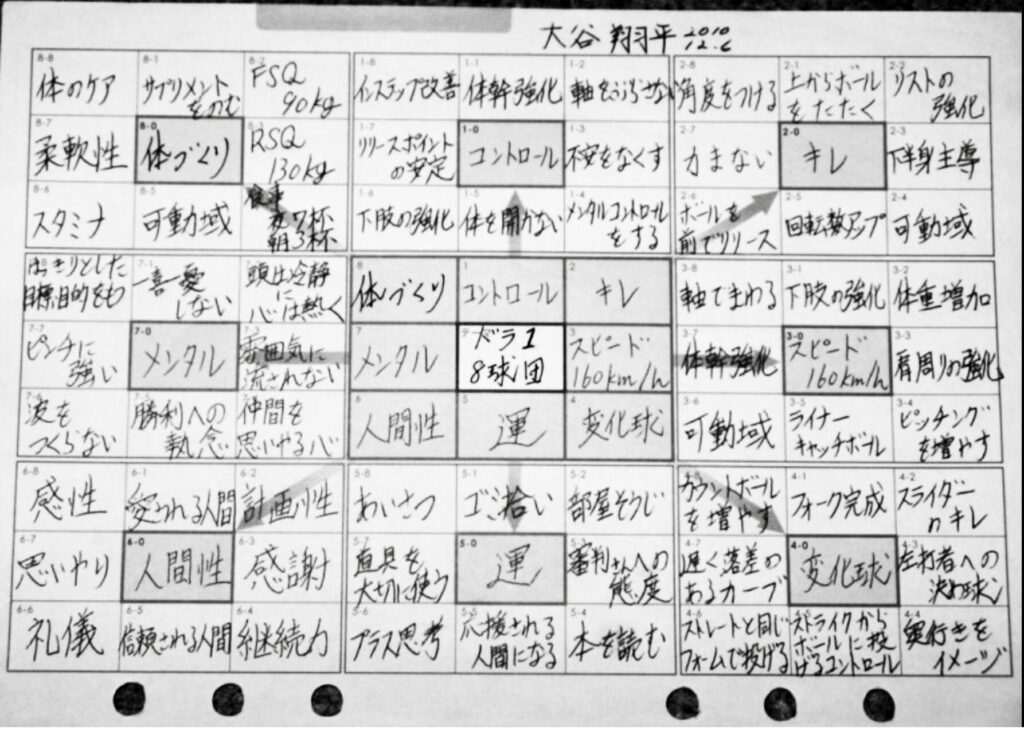 大谷 翔平 2010
12.6
8-8
体のケア
8-1
サプリメント
をのむ
8-2
FSQ
90kg
8-7
柔軟性
8-0
体づくり
RSQ
130kg
8-6
スタミナ
8-5
可動域
食事
夜7杯
朝3杯
1-8
インステップ改善
1-1
体幹強化
1-2
軸をぶらさない
1-7
リリースポイント
の安定
1-0
コントロール
1-3
不安をなくす
1-6
下肢の強化
1-5
体を開かない
1-4
メンタルコントロール
をする
2-8
角度をつける
2-1
上からボール
をたたく
2-2
リストの
強化
2-7
力まない
2-0
キレ
2-3
下半身主導
2-6
ボールを
前でリリース
2-5
回転数アップ
2-4
可動域
はっきりとした
目標目的をもつ
7-1
一喜一憂
しない
頭は冷静
に
心は熱く
7-7
ピンチに
強い
7-0
メンタル
7-3
雰囲気に
流されない
7-6
波を
つくらない
7-5
勝利への
執念
7-4
仲間を
思いやる心
8
体づくり
1
コントロール
2
キレ
7
メンタル
ドラ1
8球団
3
スピード
160km/h
6
人間性
5
運
4
変化球
3-8
軸でまわる
3-1
下肢の強化
3-2
体重増加
3-7
体幹強化
3-0
スピード
160km/h
3-3
肩周りの強化
3-6
可動域
3-5
ライナー
キャッチボール
3-4
ピッチング
を増やす
6-8
感性
6-1
愛される人間
6-2
計画性
6-7
思いやり
6-0
人間性
6-3
感謝
6-6
礼儀
6-5
信頼される人間
6-4
継続力
5-8
あいさつ
5-1
ゴミ拾い
5-2
部屋そうじ
5-7
道具を
大切に使う
5-0
運
5-3
審判さんへの
態度
5-6
プラス思考
5-5
応援される
人間になる
5-4
本を読む
4-8
カウントボール
を増やす
4-1
フォーク完成
4-2
スライダー
のキレ
4-7
遅く落差の
あるカーブ
4-0
変化球
4-3
左打者への
決め球
4-6
ストレートと同じ
フォームで投げる
4-5
ストライクから
ボールに投
げるコントロール
4-4
奥行きを
イメージ